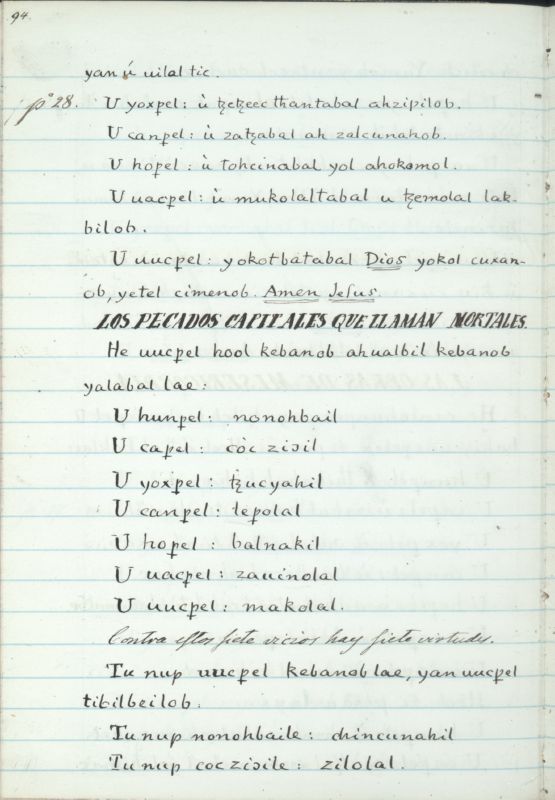 94.
yan ú uilal tic.
pº 28. U yoxpel: ù ꜩeꜩeec thantabal ahzipilob.
U canpel: ù zaꜩabal ah zalcunahob.
U hopel: ù tohcinabal yol ahokomol.
U uacpel: ù mukolaltabal u ꜩemolal lak-
bilob.
U uucpel: yokotbatabal Dios yokol cuxan-
ob, yetel cimenob. Amen Jesus.
LOS PECADOS CAPITALES QUE LLAMAN MORTALES.
He uucpel hool kebanob ahualbil kebanob
yalabal lae:
U hunpel: nonohbail
U capel: còc ziɔil
U yoxpel: ꜩucyahil
U canpel: lepolal
U hopel: balnakil
U uacpel: zauinolal
U uucpel: makolal.
Contra estos siete vicios hay siete virtudes.
Tu nup uucpel kebanob lae, yan uucpel
tibilbeilob:
Tu nup nonohbaile: chincunahil
Tu nup coc ziɔile: zilolal.